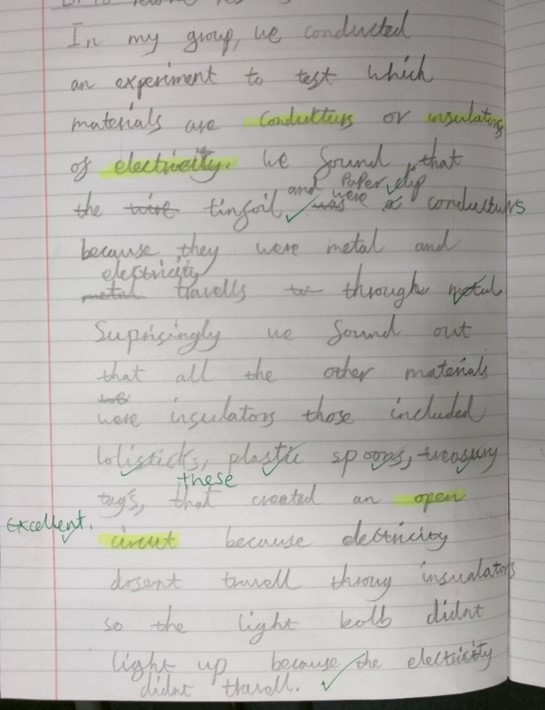 In my group, we conducted
an experiment to test which
materials are conducturs or insulators
of electricity. We found that
and Paper clip
the wire tinfoil was were a conducturs
because they were metal and
electricity
metal travells to through metal
Suprisingly we found out
that all the other materials
were insulators those included
lolisticks, plastic spoons, treasury
these
tags, that created an open
Excellent.
circut because electricity
dosent travell throug insualators
so the light bolb didnt
light up because the electricity
didnt travell.